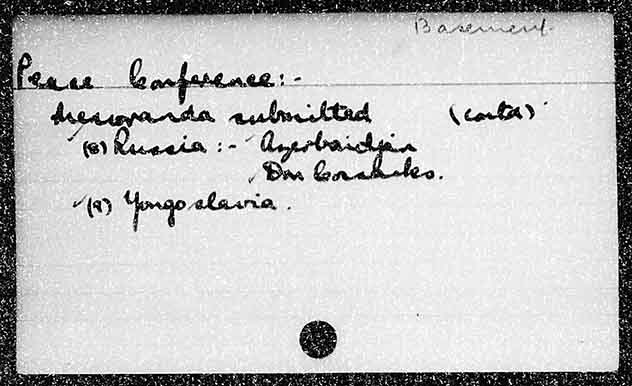 Basement.
Peace Conference:-
Memoranda submitted (contd)
(8) Russia :- Azerbaidjan
Don Cossacks.
(9) Yougoslavia.